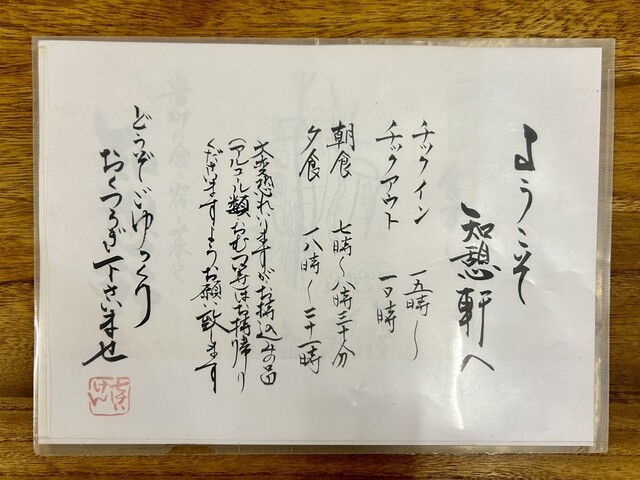 ようこそ
知憩軒へ
チックイン 一五時〜
チックアウト 一〇時
朝食 七時〜八時三十分
夕食 一八時〜二十一時
大変恐れ入りますがお持込みの品
(アルコール類・おむつ等はお持帰り
くださいますようお願い致します
どうぞごゆっくり
おくつろぎ下さいませ
ちけい
けん